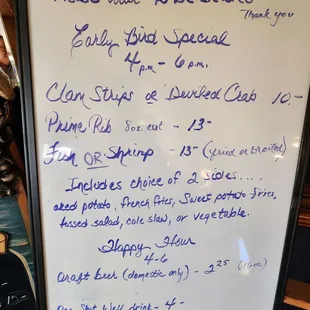 Thank you
Early Bird Special
4 p.m. - 6 p.m.
Clam Strips or Deviled Crab 10.-
Prime Rib 8oz. cut - 13-
Fish OR Shrimp - 13- (fried or broiled)
Includes choice of 2 sides....
potato, french fries, sweet potato fries,
tossed salad, cole slaw, or vegetable.
Happy Hour
4-6
Draft beer (domestic only) - 2 25
well drink - 4-